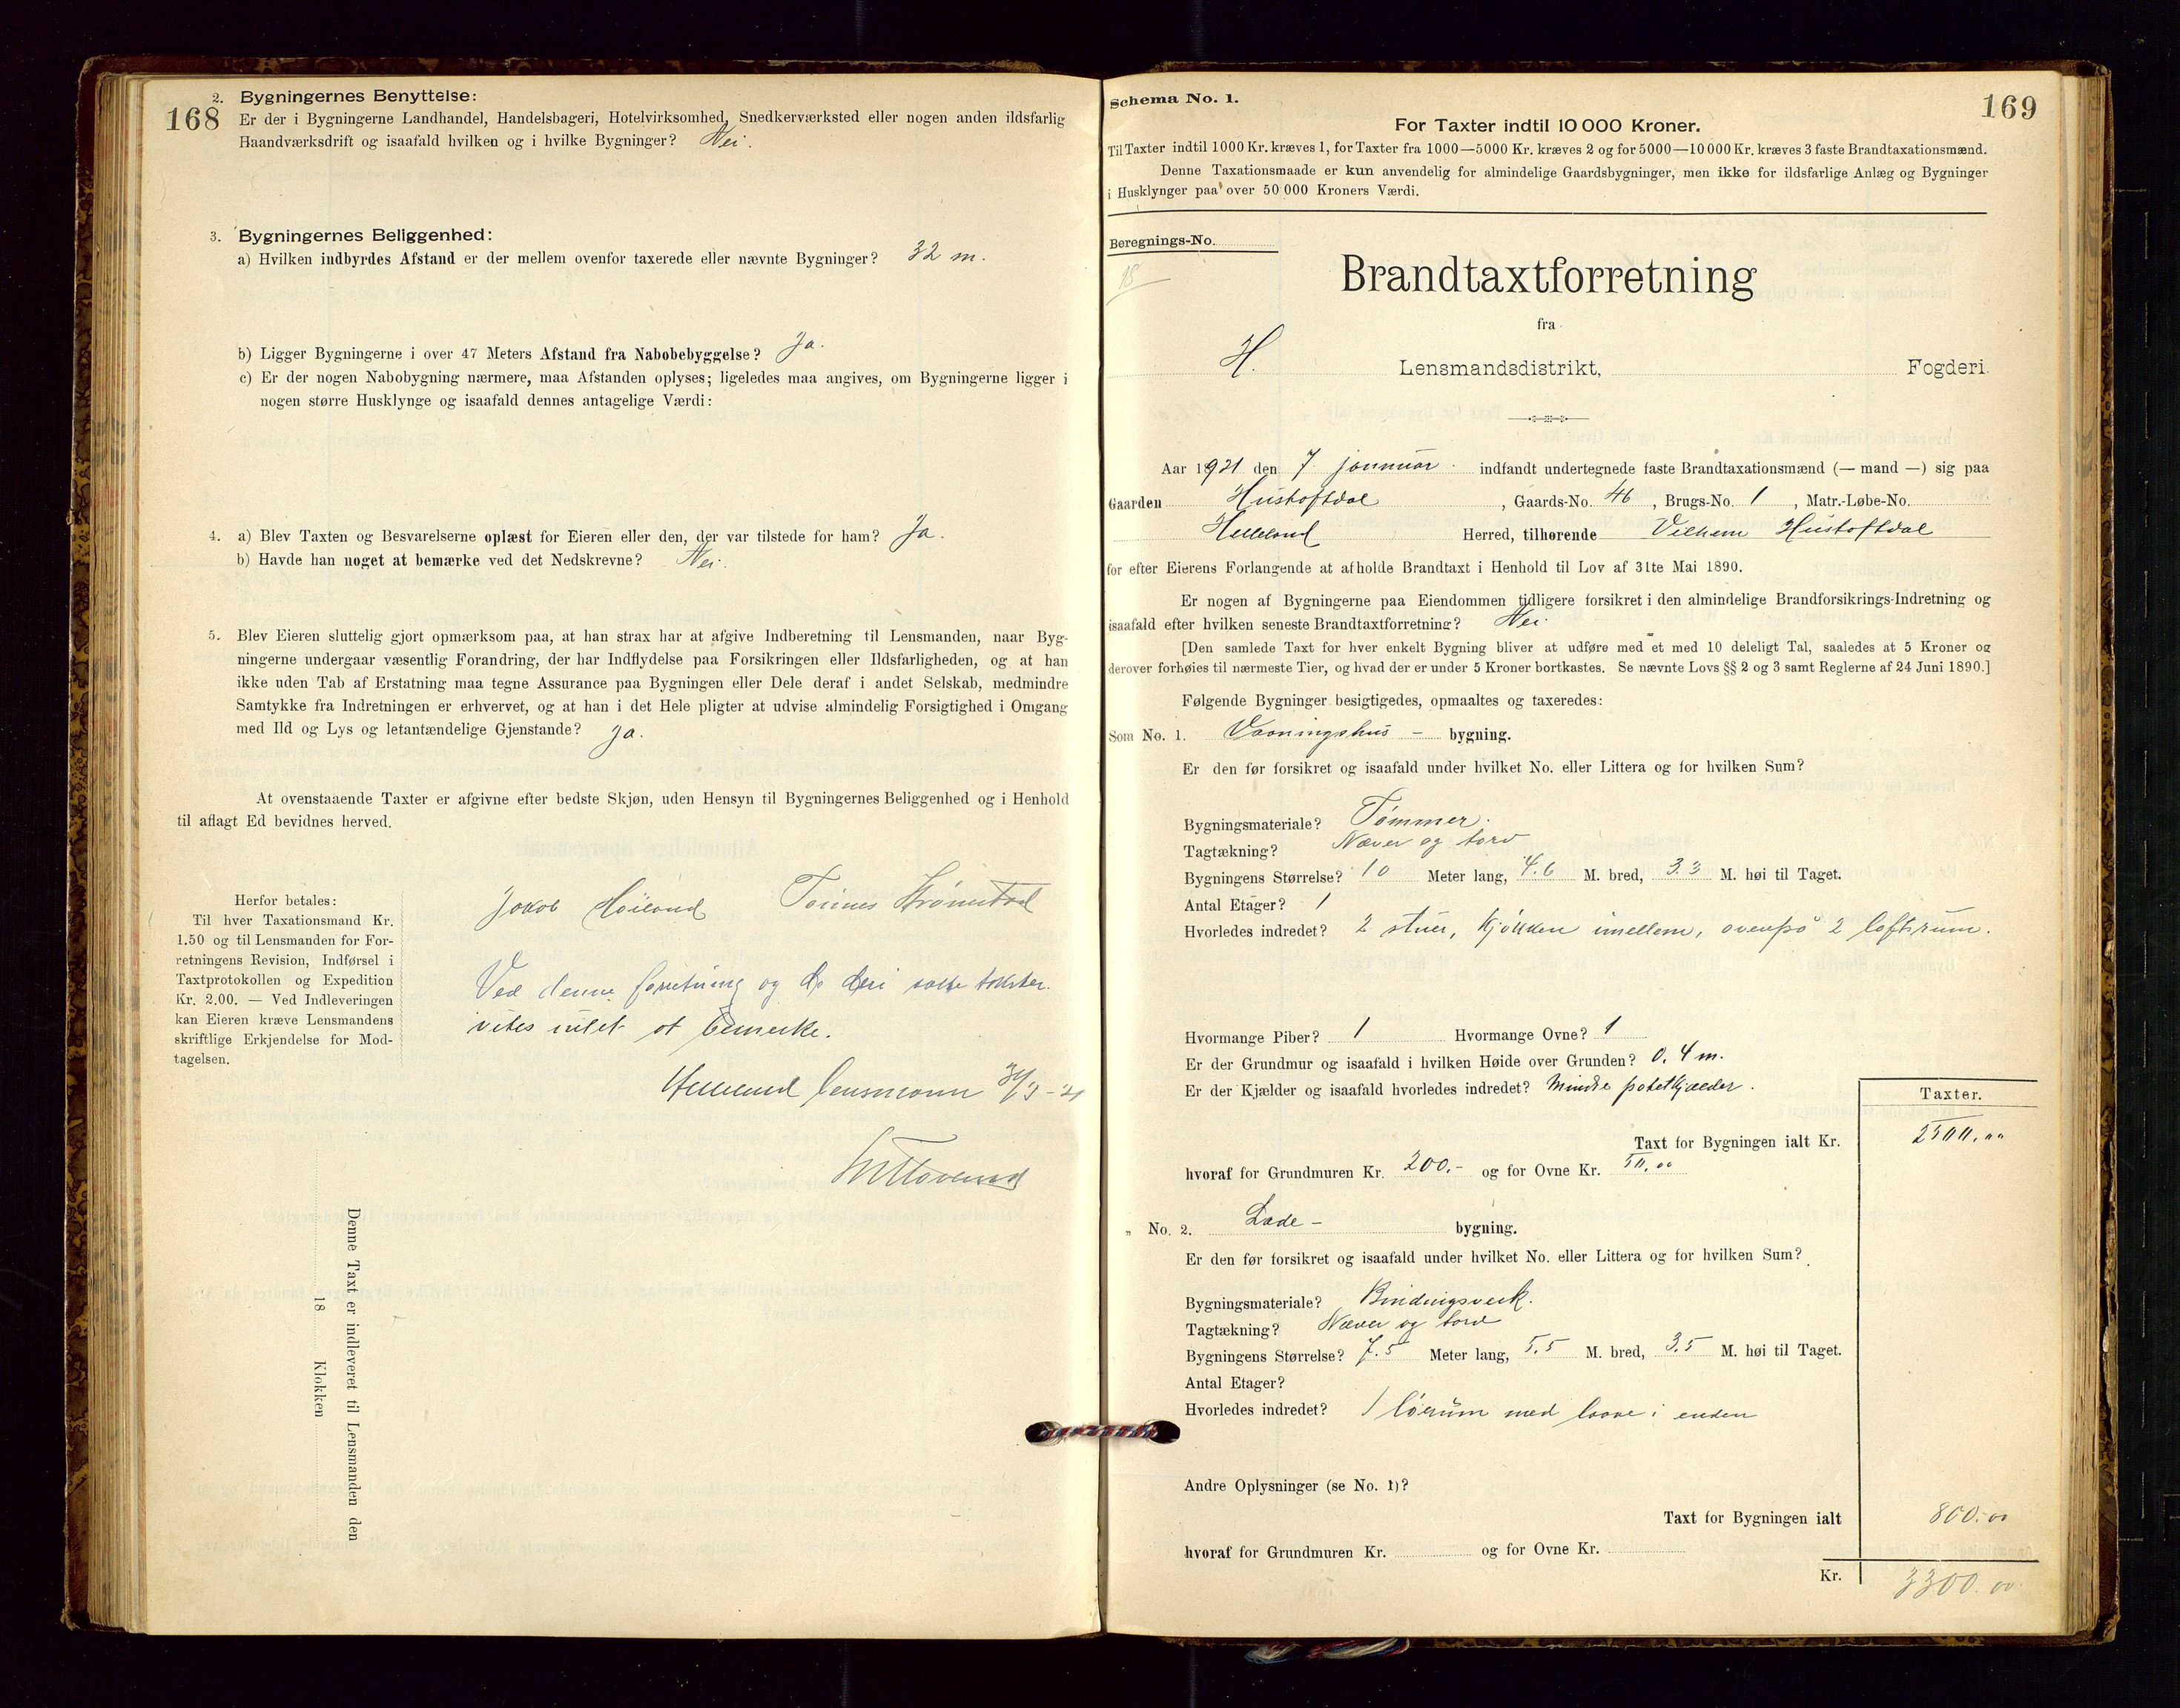 168
2. Bygningernes Benyttelse:
Er der i Bygningerne Landhandel, Handelsbageri, Hotelvirksomhed, Snedkerværksted eller nogen anden ildsfarlig
Haandværksdrift og isaafald hvilken og i hvilke Bygninger? Nei.
3. Bygningernes Beliggenhed:
a) Hvilken indbyrdes Afstand er der mellem ovenfor taxerede eller nævnte Bygninger? 32 m.
b) Ligger Bygningerne i over 47 Meters Afstand fra Nabobebyggelse? Ja.
c) Er der nogen Nabobygning nærmere, maa Afstanden oplyses; ligeledes maa angives, om Bygningerne ligger i
nogen større Husklynge og isaafald dennes antagelige Værdi:
4. a) Blev Taxten og Besvarelserne oplæst for Eieren eller den, der var tilstede for ham? Ja.
b) Havde han noget at bemærke ved det Nedskrevne? Nei.
5. Blev Eieren sluttelig gjort opmærksom paa, at han strax har at afgive Indberetning til Lensmanden, naar Byg-
ningerne undergaar væsentlig Forandring, der har Indflydelse paa Forsikringen eller Ildsfarligheden, og at han
ikke uden Tab af Erstatning maa tegne Assurance paa Bygningen eller Dele deraf i andet Selskab, medmindre
Samtykke fra Indretningen er erhvervet, og at han i det Hele pligter at udvise almindelig Forsigtighed i Omgang
med Ild og Lys og letantændelige Gjenstande? Ja.
At ovenstaaende Taxter er afgivne efter bedste Skjøn, uden Hensyn til Bygningernes Beliggenhed og i Henhold
til aflagt Ed bevidnes herved.
Jakob Høiland Tønnes
Herfor betales:
Til hver Taxationsmand Kr.
1.50 og til Lensmanden for For-
retningens Revision, Indførsel i
Taxtprotokollen og Expedition
Kr. 2.00. — Ved Indleveringen
kan Eieren kræve Lensmandens
skriftlige Erkjendelse for Mod-
tagelsen.
Ved denne forretning og de deri satte takster
vites intet at bemerke.
Helleland lensmann 31/3 - 21
Denne Taxt er indleveret til Lensmanden den
18 Klokken
169
Schema No. 1.
For Taxter indtil 10 000 Kroner.
Til Taxter indtil 1000 Kr. kræves 1, for Taxter fra 1000—5000 Kr. kræves 2 og for 5000—10 000 Kr. kræves 3 faste Brandtaxationsmænd.
Denne Taxationsmaade er kun anvendelig for almindelige Gaardsbygninger, men ikke for ildsfarlige Anlæg og Bygninger
i Husklynger paa over 50 000 Kroners Værdi.
Beregnings-No.
18
Brandtaxtforretning
fra
H. Lensmandsdistrikt, Fogderi.
Aar 1921 den 7 januar indfandt undertegnede faste Brandtaxationsmænd (— mand —) sig paa
Gaarden Hustoftdal, Gaards-No. 46, Brugs-No. 1, Matr.-Løbe-No.
Helleland Herred, tilhørende Vilhem Hustoftdal
for efter Eierens Forlangende at afholde Brandtaxt i Henhold til Lov af 31te Mai 1890.
Er nogen af Bygningerne paa Eiendommen tidligere forsikret i den almindelige Brandforsikrings-Indretning og
isaafald efter hvilken seneste Brandtaxtforretning? Nei.
[Den samlede Taxt for hver enkelt Bygning bliver at udføre med et med 10 deleligt Tal, saaledes at 5 Kroner og
derover forhøies til nærmeste Tier, og hvad der er under 5 Kroner bortkastes. Se nævnte Lovs §§ 2 og 3 samt Reglerne af 24 Juni 1890.]
Følgende Bygninger besigtigedes, opmaaltes og taxeredes:
Som No. 1. Vaaningshus - bygning.
Er den før forsikret og isaafald under hvilket No. eller Littera og for hvilken Sum?
Bygningsmateriale? Tømmer.
Tagtækning? Næver og torv
Bygningens Størrelse? 10 Meter lang, 4.6 M. bred, 3.3 M. høi til Taget.
Antal Etager? 1
Hvorledes indredet? 2 stuer, kjøkken imellem, ovenpå 2 loftsrum.
Hvormange Piber? 1 Hvormange Ovne? 1
Er der Grundmur og isaafald i hvilken Høide over Grunden? 0.4 m.
Er der Kjælder og isaafald hvorledes indredet? Mindre potetkjælder.
Taxter.
Taxt for Bygningen ialt Kr. 2500,00
hvoraf for Grundmuren Kr. 200.- og for Ovne Kr. 50,00
„ No. 2. Lade - bygning.
Er den før forsikret og isaafald under hvilket No. eller Littera og for hvilken Sum?
Bygningsmateriale? Bindingsverk.
Tagtækning? Næver og torv
Bygningens Størrelse? 7.5 Meter lang, 5.5 M. bred, 3.5 M. høi til Taget.
Antal Etager?
Hvorledes indredet? 1 lørum med laave i enden
Andre Oplysninger (se No. 1)?
Taxt for Bygningen ialt 800.00
hvoraf for Grundmuren Kr. og for Ovne Kr.
Kr. 3300.00